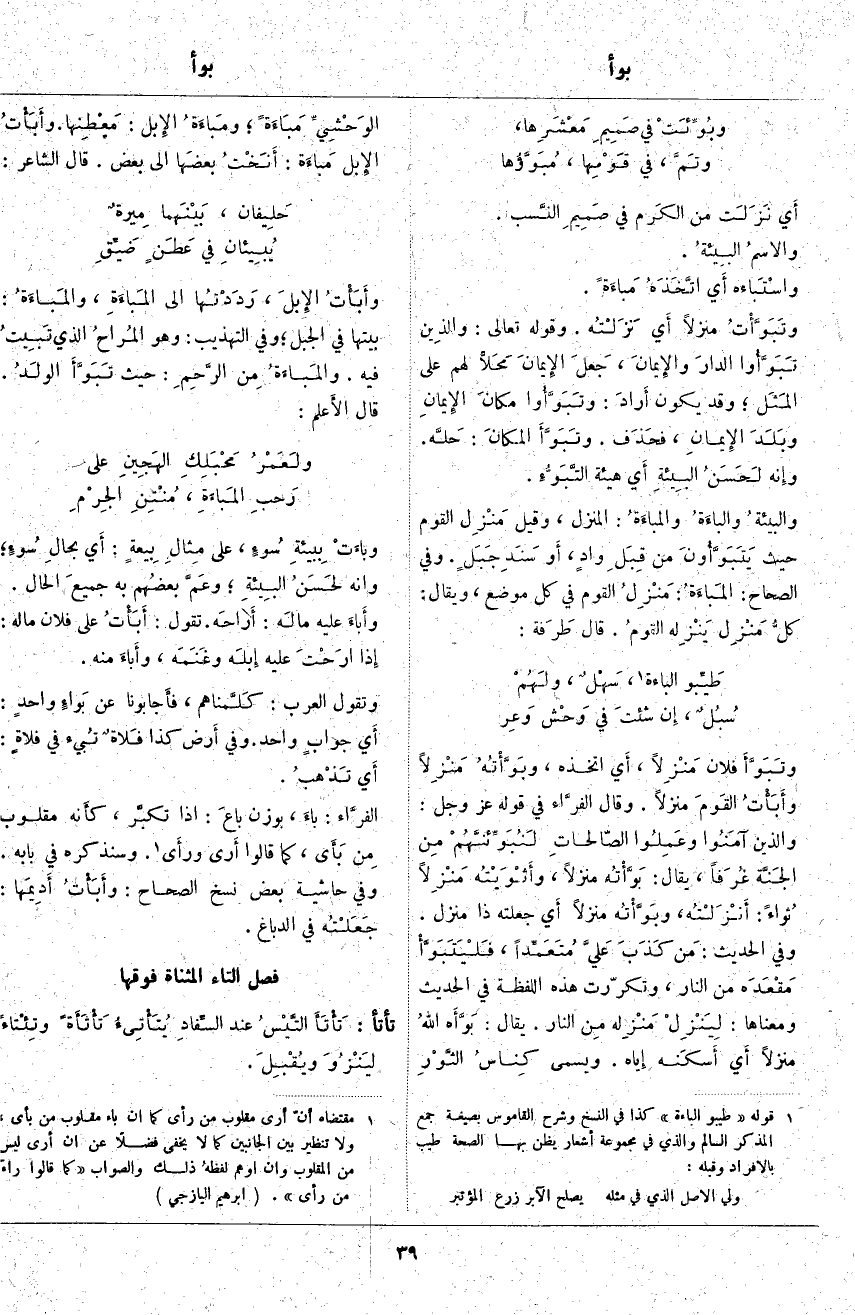 بوأ
بوأ
وبُوِّئَتْ في صَمِيمِ مَعْشَرِها،
وتَمَّ ، في قَوْمِها ، مُبَوَّؤُها
أي نَزَلَت من الكرم في صَمِيمِ النَّسب .
والاسمُ البِيئةُ .
واسْتَباءه أي اتَّخَذَهُ مَباءَةً .
وتَبَوَّأْتُ منزلاً أي نَزَلْتُه . وقوله تعالى : والذين
تَبَوَّأُوا الدارَ والإيمانَ ، جَعلَ الإيمانَ مَحَلاًّ لهم على
المَثَل ؛ وقد يكون أرادَ : وتَبَوَّأُوا مكانَ الإيمانِ
وبَلَدَ الإيمانِ ، فحَذَف . وتَبَوَّأَ المكانَ : حَلَّه.
وإنه لَحَسَنُ البِيئةِ أي هيئة التَّبَوُّءِ .
والبيئةُ والباءةُ والمباءةُ : المنزل ، وقيل مَنْزِل القوم
حيث يَتَبَوَّأُونَ من قِبَلِ وادٍ ، أو سَنَدِ جَبَلٍ . وفي
الصحاح : المَباءةُ : مَنْزِلُ القوم في كل موضع ، ويقال:
كلُّ مَنْزِل يَنْزِله القومُ . قال طَرَفة :
طَيِّبو الباءة١ ، سَهْلٌ ، ولَهُمْ
سُبُلٌ ، إن شئتَ في وَحْش وَعِر
وتَبَوَّأَ فلان مَنْزِلاً ، أي اتخذه ، وبَوَّأْتُهُ مَنْزِلاً
وأَبَأْتُ القومَ منزلاً . وقال الفرَّاء في قوله عز وجل :
والذين آمَنُوا وعَمِلُوا الصّالحاتِ لَنُبَوِّئَنَّهُمْ مِن
الجَنَّة غُرَفاً ، يقال: بَوَّأْتُه منزلاً ، وأَثْوَيْتُه مَنْزِلاً
ثُواءً : أنْزَلْتُه ، وبَوَّأْتُه منزلاً أي جعلته ذا منزل .
وفي الحديث : مَن كَذَبَ عَلَيَّ مُتَعَمِّداً ، فَلْيَتَبَوَّأْ
مَقْعَدَه من النار ، وتكرّرت هذه اللفظة في الحديث
ومعناها : لِيَنْزِلْ مَنْزِله مِن النار . يقال : بَوَّأَه اللهُ
منزلاً أي أسكَنَه إياه . ويسمى كِناسُ الثَّوْرِ
١ قوله « طيبو الباءة » كذا في النسخ وشرح القاموس بصيغة جمع
المذكر السالم والذي في مجموعة أشعار يظن بها الصحة طيب
بالافراد وقبله :
ولي الاصل الذي في مثله يصلح الآبر زرع المؤتبر
الوَحْشِيِّ مَبَاءَةً ؛ ومَبَاءَةُ الإبل : مَعْطِنها. وأَبَأْتُ
الإبل مَباءَة : أَنَخْتُ بعضَها الى بعض . قال الشاعر :
حَلِيفان ، بَيْنَهما مِيرةٌ
يُبِيئانِ في عَطَنٍ ضَيِّقِ
وأَبَأْتُ الإبلَ ، رَدَدْتُها الى المَباءَةِ ، والمَباءَةُ :
بيتها في الجبل ؛ وفي التهذيب : وهو المُراحُ الذي تَبِيتُ
فيه . والمَباءَةُ مِن الرَّحِمِ : حيث تَبَوَّأَ الولَدُ .
قال الأعلم :
ولَعَمْرُ مَحْبَلِكِ الهَجِينِ على
رَحبِ المَباءَةِ ، مُنْتِنِ الجِرْمِ
وباءَتْ بِبيئةِ سُوءٍ ، على مِثالِ بِيعةٍ : أي بحالِ سُوءٍ ؛
وانه لحَسَنُ البِيئةِ ؛ وعَمَّ بعضُهم به جميعَ الحال .
وأَباءَ عليه مالَه : أَراحَه. تقول : أَبَأْتُ على فلان ماله :
إذا ارَحْتَ عليه إبلَه وغَنَمَه ، وأَباءَ منه .
وتقول العرب : كَلَّمناهم ، فأَجابونا عن بَواءٍ واحدٍ :
أي جوابٍ واحد. وفي أرض كذا فَلاةٌ تُبيء في فلاةٍ :
أي تَذْهبُ .
الفرَّاء : باءَ ، بوزن باعَ : اذا تكبَّر ، كأنه مقلوب
مِن بَأَى ، كما قالوا أرى ورأى١. وسنذكره في بابه .
وفي حاشية بعض نسخ الصحاح : وأَبَأْتُ أَدِيمَها :
جَعَلْتُه في الدباغ .
فصل التاء المثناة فوقها
تأتأ : تَأْتَأَ التَّيْسُ عند السِّفادِ يُتَأْتِىءُ تَأْتَأَةً وتِئْتاءً
لِيَنْزُوَ ويُقْبِلَ .
١ مقتضاه أنّ أرى مقلوب من رأى كما ان باء مقلوب من بأى ،
ولا تنظير بين الجانبين كما لا يخفى فضلاً عن ان أرى ليس
من المقلوب وان اوهم لفظهُ ذلك والصواب « كما قالوا راءَ
من رأى » . ( ابرهيم اليازجي )
٣٩